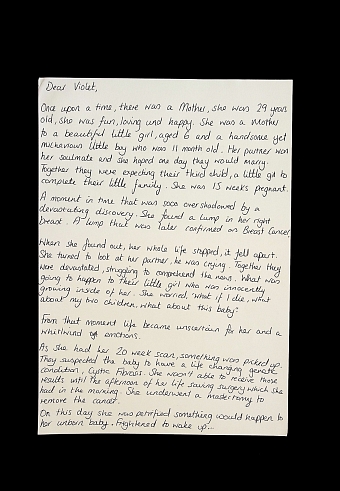 Dear Violet,
Once upon a time, there was a Mother, she was 29 years
old, she was fun, loving and happy. She was a Mother
to a beautiful little girl, aged 6 and a handsome yet
mischievious little boy who was 11 month old. Her partner was
her soulmate and she hoped one day they would marry.
Together they were expecting their third child, a little girl to
complete their little family. She was 15 weeks pregnant.
A moment in time that was soon overshadowed by a
devastating discovery. She found a lump in her right
breast. A lump that was later confirmed as Breast Cancer
When she found out, her whole life stopped, it fell apart.
She turned to look at her partner, he was crying. Together they
were devastated, struggling to comprehend the news. What was
going to happen to their little girl who was innocently
growing inside of her. She worried, 'what if I die, what
about my two children, what about this baby'
From that moment life became uncertain for her and a
whirlwind of emotions.
As she had her 20 week scan, something was picked up.
They suspected the baby to have a life changing genetic
condition, Cystic Fibrosis. She wasn't able to receive those
results until the afternoon of her life saving surgery which she
had in the morning. She underwent a mastectomy to
remove the cancer.
On this day she was petrified something would happen to
her unborn baby, frightened to wake up...